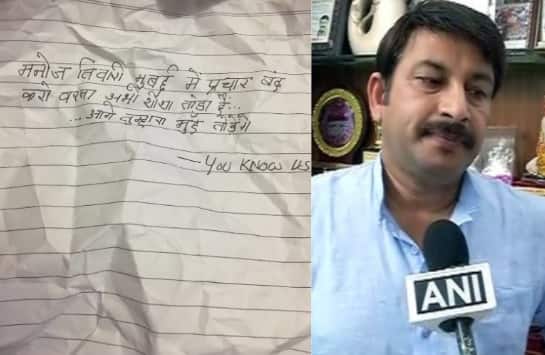 मनोज तिवारी मुंबई में प्रचार बंद
करो वरना अभी शीशा तोड़ा है..
...आगे तुम्हारा मुंह तोड़ेंगे
— YOU KNOW US
ANI